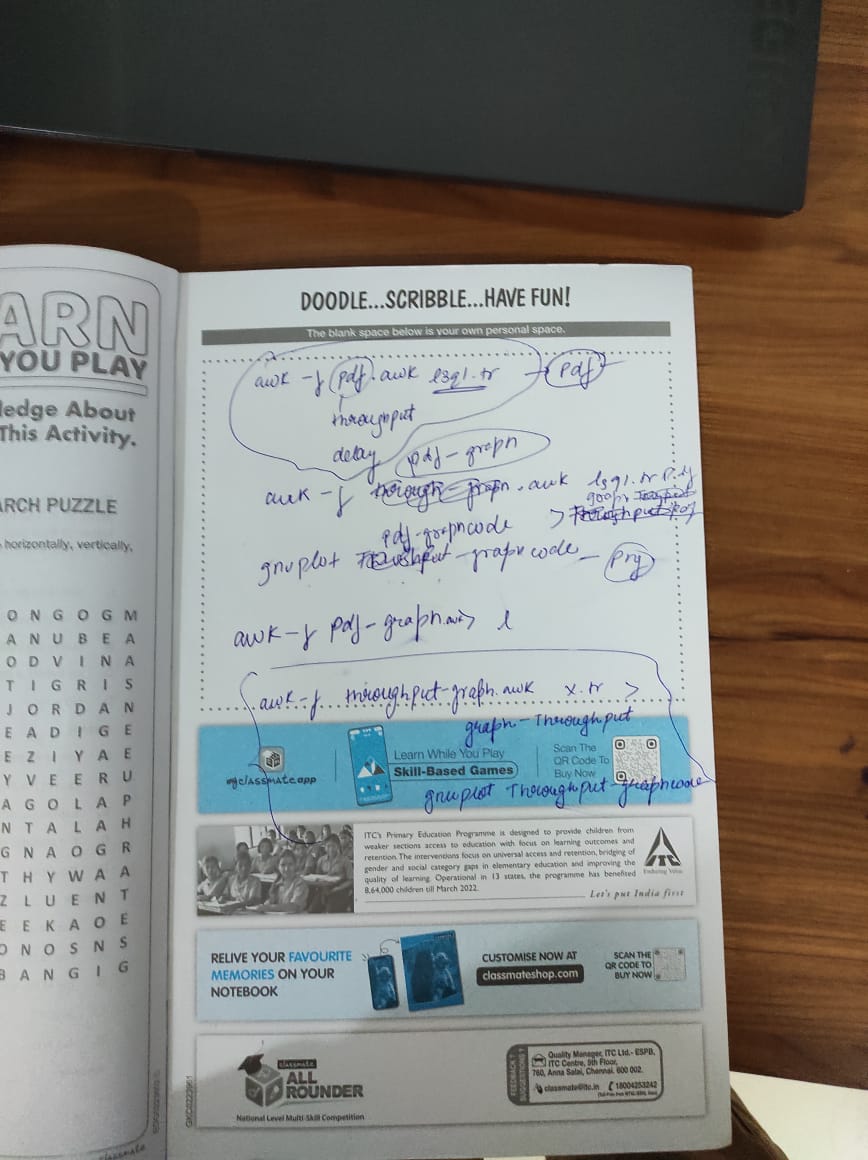 ARN
YOU PLAY
ledge About
This Activity.
ARCH PUZZLE
horizontally, vertically,
O N G O G M
A N U B E A
O D V I N A
T I G R I S
J O R D A N
E A D I G E
E Z I Y A E
Y V E E R U
A G O L A P
N T A L A H
G N A O G R
T H Y W A A
Z L U E N T
E E K A O E
O N O S N S
B A N G I G
classmate
DOODLE...SCRIBBLE...HAVE FUN!
The blank space below is your own personal space.
awk -f pdf.awk → pdf
throughput
delay
pdf-graph
awk -f .awk
pdf-graphcode
gnuplot -graphcode - png
awk -f pdf-graph.awk >
awk -f throughput-graph.awk x.tr >
graph-Throughput
gnuplot Throughput-graphcode
myclassmateapp
Learn While You Play
Skill-Based Games
Scan The
QR Code To
Buy Now
ITC's Primary Education Programme is designed to provide children from
weaker sections access to education with focus on learning outcomes and
retention. The interventions focus on universal access and retention, bridging of
gender and social category gaps in elementary education and improving the
quality of learning. Operational in 13 states, the programme has benefited
8,64,000 children till March 2022.
Let's put India first
ITC
Enduring Value
RELIVE YOUR FAVOURITE
MEMORIES ON YOUR
NOTEBOOK
CUSTOMISE NOW AT
classmateshop.com
SCAN THE
QR CODE TO
BUY NOW
classmate
ALL
ROUNDER
National Level Multi-Skill Competition
FEEDBACK?
SUGGESTIONS?
Quality Manager, ITC Ltd.- ESPB,
ITC Centre, 5th Floor,
760, Anna Salai, Chennai. 600 002.
classmate@itc.in 18004253242